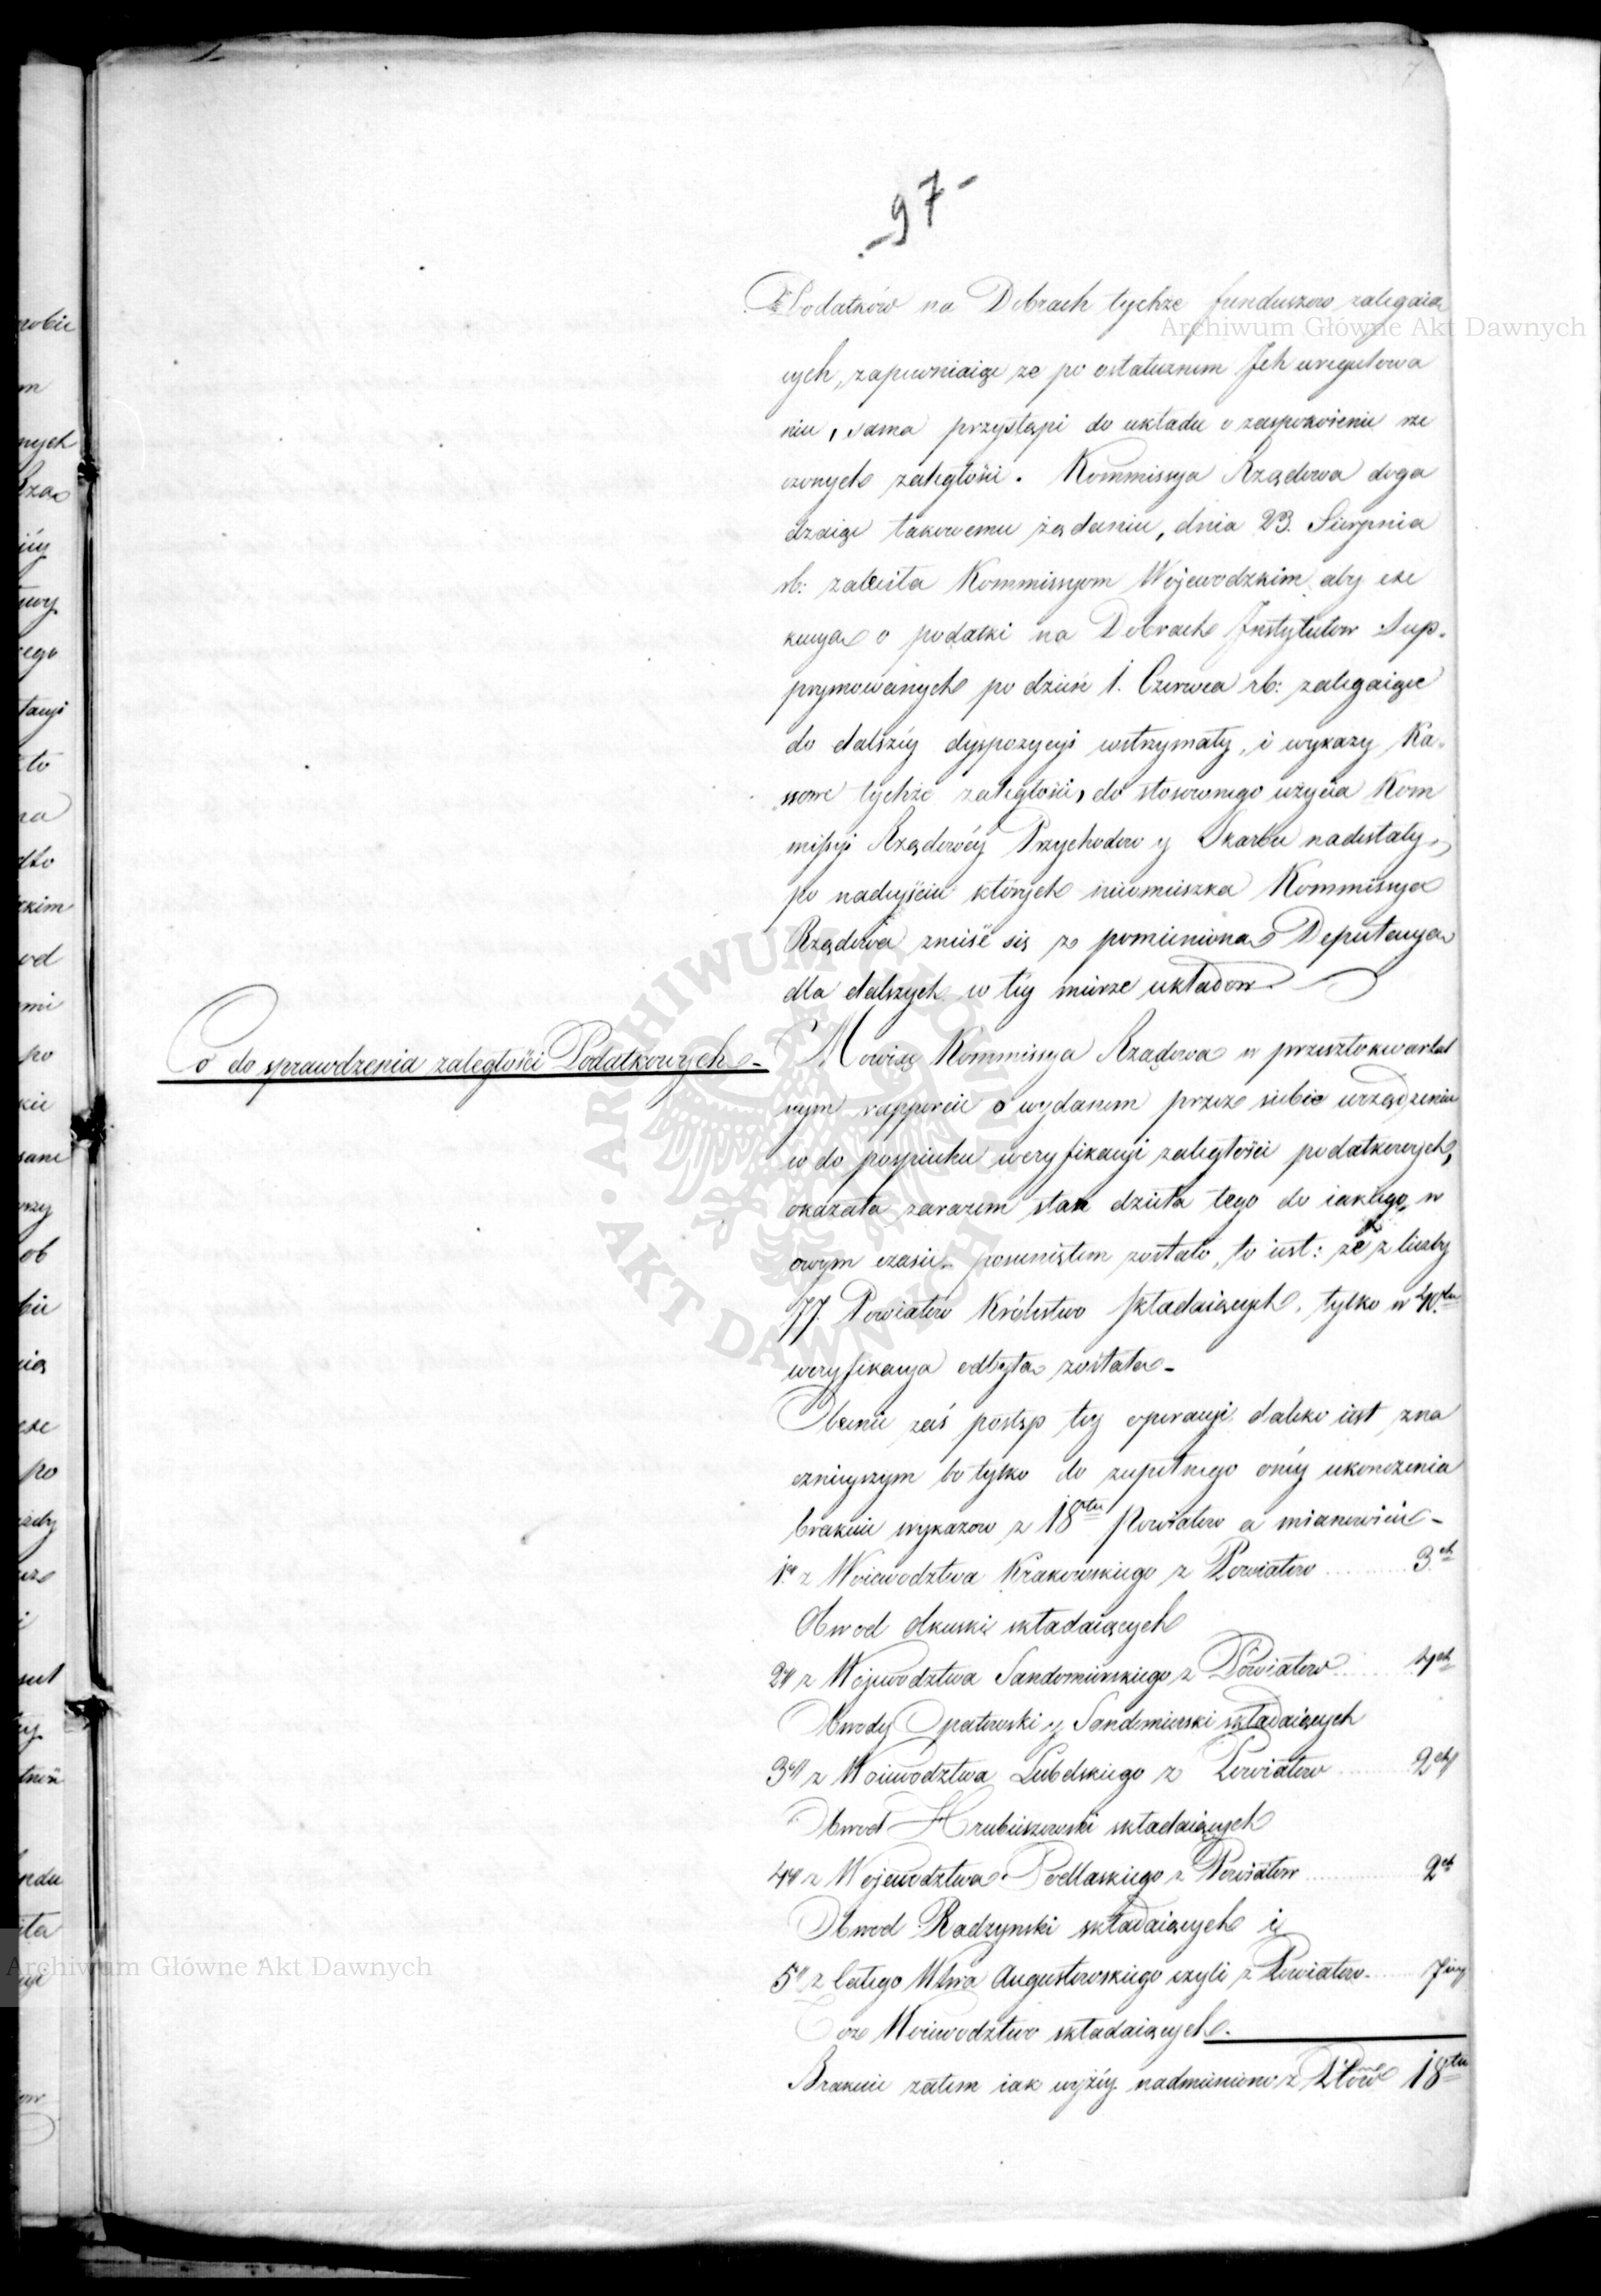 - 97 -
Podatków na Dobrach tychże funduszow zalegaią
cych, zapewniaiąc ze po ostatecznem Ich uregulowa
niu, sama przystąpi do układu o zaspokoienie rze
czonych zaległości. Kommissya Rządowa doga
dzaiąc takowemu żądaniu, dnia 23. Sierpnia
rb: zaleciła Kommissyom Wojewodzkim aby exe
kucyą o podatki na Dobrach Instytutow Sup-
prymowanych po dzień 1. Czerwca rb: zalegaiące
do dalszéy dyspozycyi wstrzymały, i wykazy Ka-
ssowe tychże zaległości, do stosownego użycia Kom
missyi Rządowéy Przychodow y Skarbu nadesłały,
po nadeyściu których nieomieszka Kommissya
Rządowa znieść się z pomienioną Deputacyą
dla dalszych w téy mierze układow
Co do sprawdzenia zaległości Podatkowych -
Mowiąc Kommissya Rządowa w przeszłokwartal
nym rapporcie o wydanem przez siebie urządzeniu
w do pospiechu weryfikacyi zaległości podatkowych,
okazała zarazem stan dzieła tego do iakiego w
owym czasie posuniętem zostało, to iest: że z liczby
77. Powiatow Królestwo składaiących, tylko w 40.tu
weryfikacya odbyta została -
Obecnie zaś postęp téy operacyi daleko iest zna
cznieyszym bo tylko do zupełnego onéy ukonczenia
brakuie wykazow z 18tu Powiatow a mianowicie -
1o z Woiewodztwa Krakowskiego z Powiatow ......... 3.ch
Obwod Olkuski składaiących
2o z Wojewodztwa Sandomierskiego z Powiatow ...... 4ch
Obwody Opatowski y Sandomierski składaiących
3o z Woiewodztwa Lubelskiego z Powiatow ....... 2ch
Obwod Hrubieszowski składaiących
4o z Wojewodztwa Podlaskiego z Powiatow ......... 2ch
Obwod Radzynski składaiących i
5o z całego Wtwa Augustowskiego czyli z Powiatow ..... 7miu
Toż Woiewodztwo składaiących.
Brakuie zatem iak wyżéy nadmieniono z Ptów 18tu
Archiwum Główne Akt Dawnych
Archiwum Główne Akt Dawnych
ARCHIWUM GŁÓWNE · AKT DAWNYCH ·